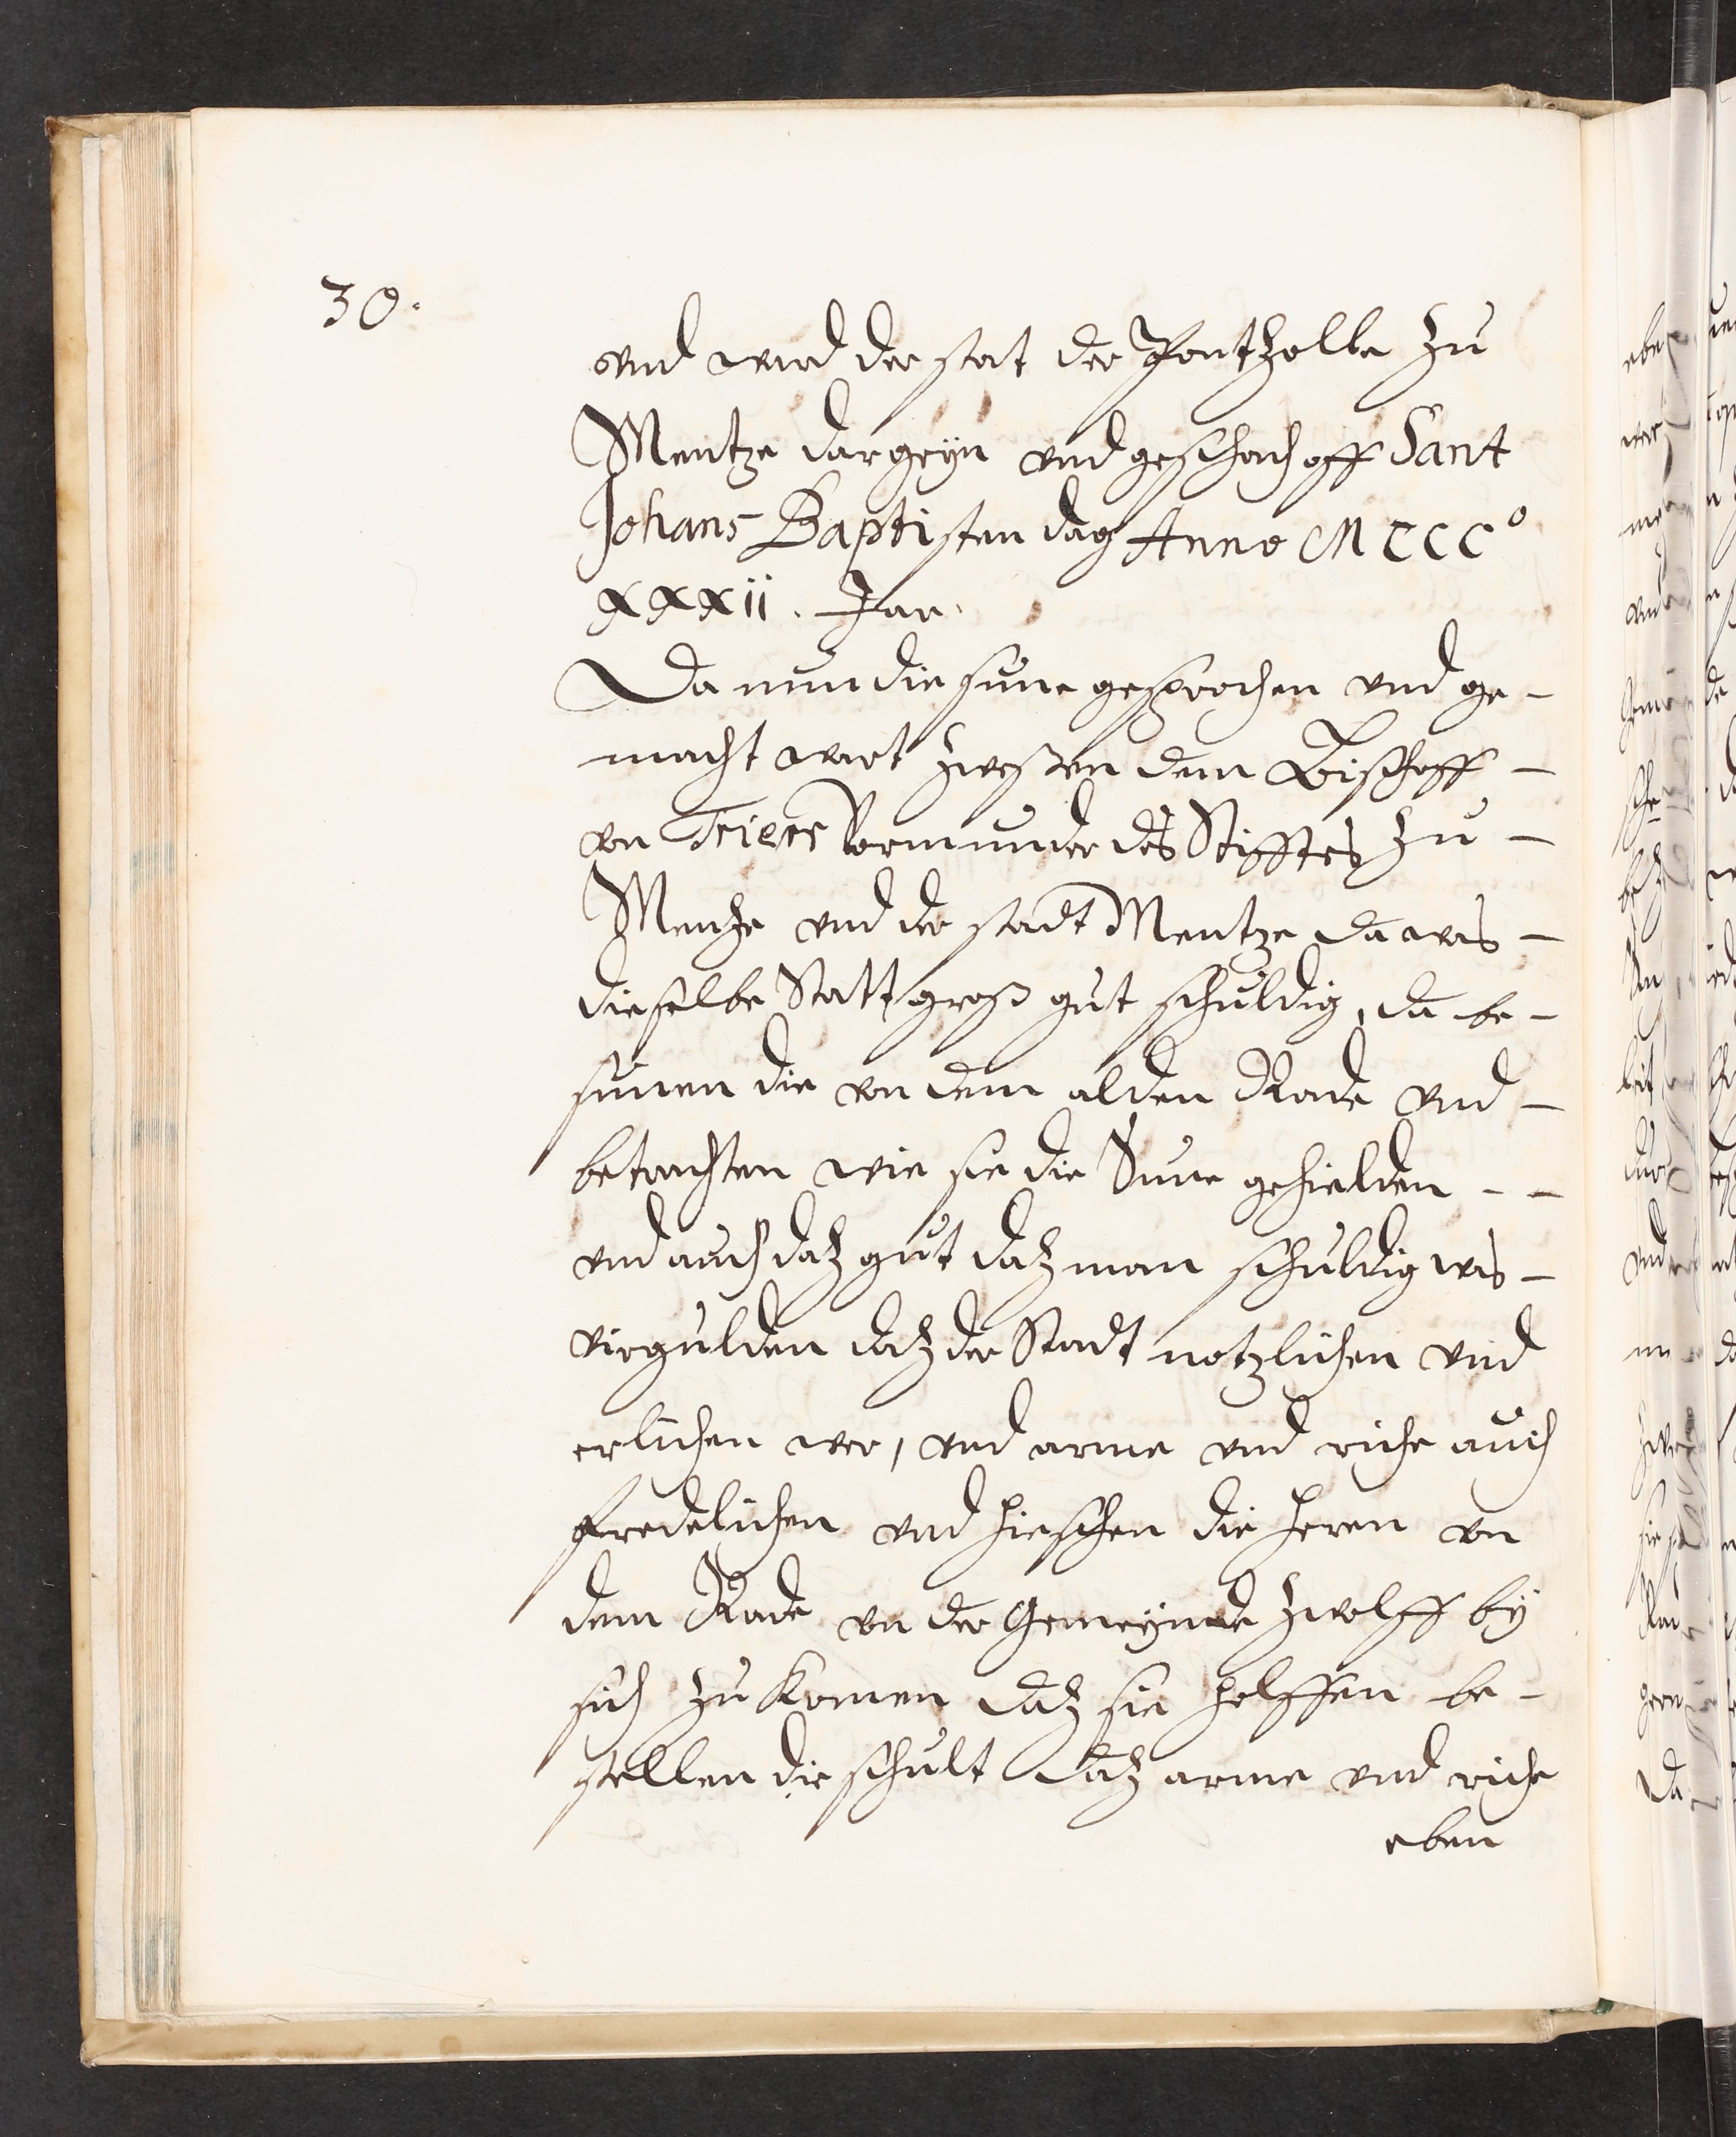 30.
vnd ward der stat der Pontzolle zu
Mentze dargeyn vnd geschach off Sant
Johans Baptisten dag Anno MCCC°
XXXii. Jar.
Da nun die sune gesprochen vnd ge-
macht wart zwoschen dem Bischoff -
von Trier Vormunder des Stifftes zu -
Mentze vnd der stadt Mentze da was -
dieselbe Statt groß gut schuldig, da be-
sunnen die von dem alden Rade vnd -
betrachten wie sie die Sune gehielden - -
vnd auch daz gut daz man schuldig was -
virgulden daz der Stadt notzlichen vnd
erlichen wer, vnd arme vnd riche auch
fredelichen vnd hieschen die heren von
dem Rade von der Gemeynde zwolff by
sich zu komen daz sie holffen be-
stellen die schult daz arme vnd riche
eben